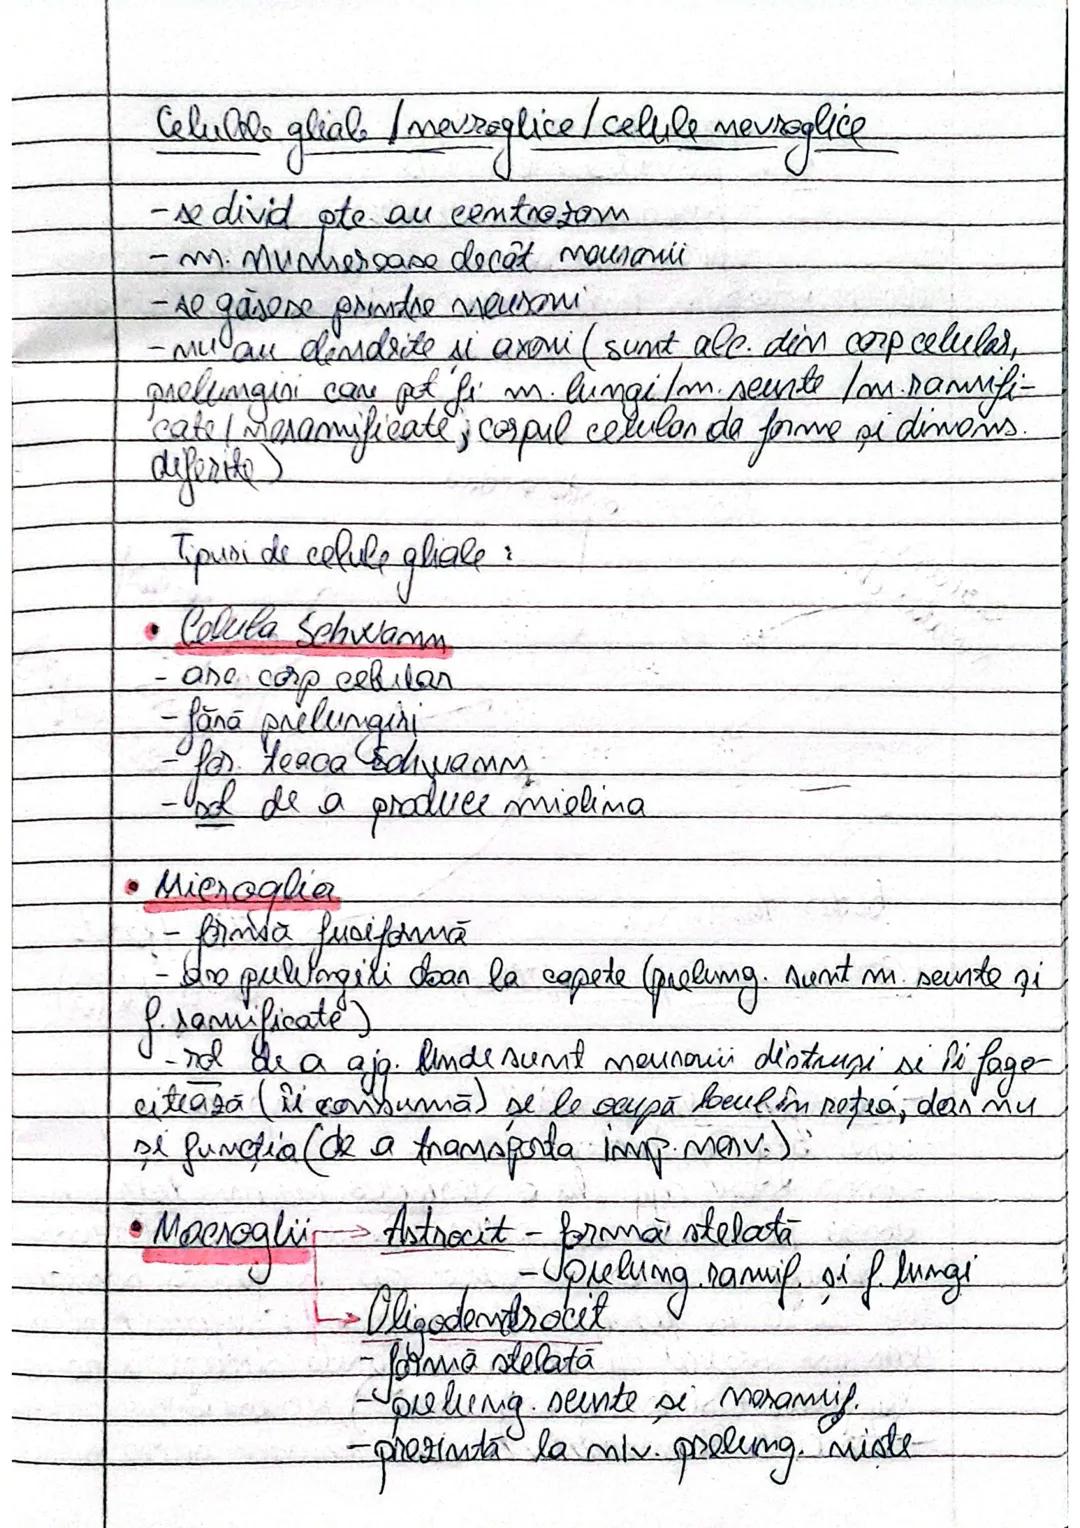 Celulele gliale / nevroglice / celule nevroglice
- se divid ptc au centrozom
- m. numeroase decât neuronii
- se găsesc printre neuroni
- nu au dendrite și axoni (sunt alc. din corp celular,
prelungiri care pot fi m. lungi / m. scurte / m. ramifi-
cate / neramificate; corpul celular de forme și dimens.
diferite)
Tipuri de celule gliale :
• Celula Schwann
- are corp celular
- fără prelungiri
- for. teaca Schwann
- rol de a produce mielina
• Microglia
- formă fusiformă
- are prelungiri doar la capete (prelung. sunt m. scurte și
f. ramificate)
- rol de a aj. unde sunt neuronii distruși și îi fago-
citează (îi consumă) și le ocupă locul în rețea, dar nu
și funcția (de a transporta imp. nerv.)
• Macroglii → Astrocit - formă stelată
- prelung. ramif. și f. lungi
→ Oligodendrocit
- formă stelată
- prelung. scurte și neramif.
- prezintă la niv. prelung. niște